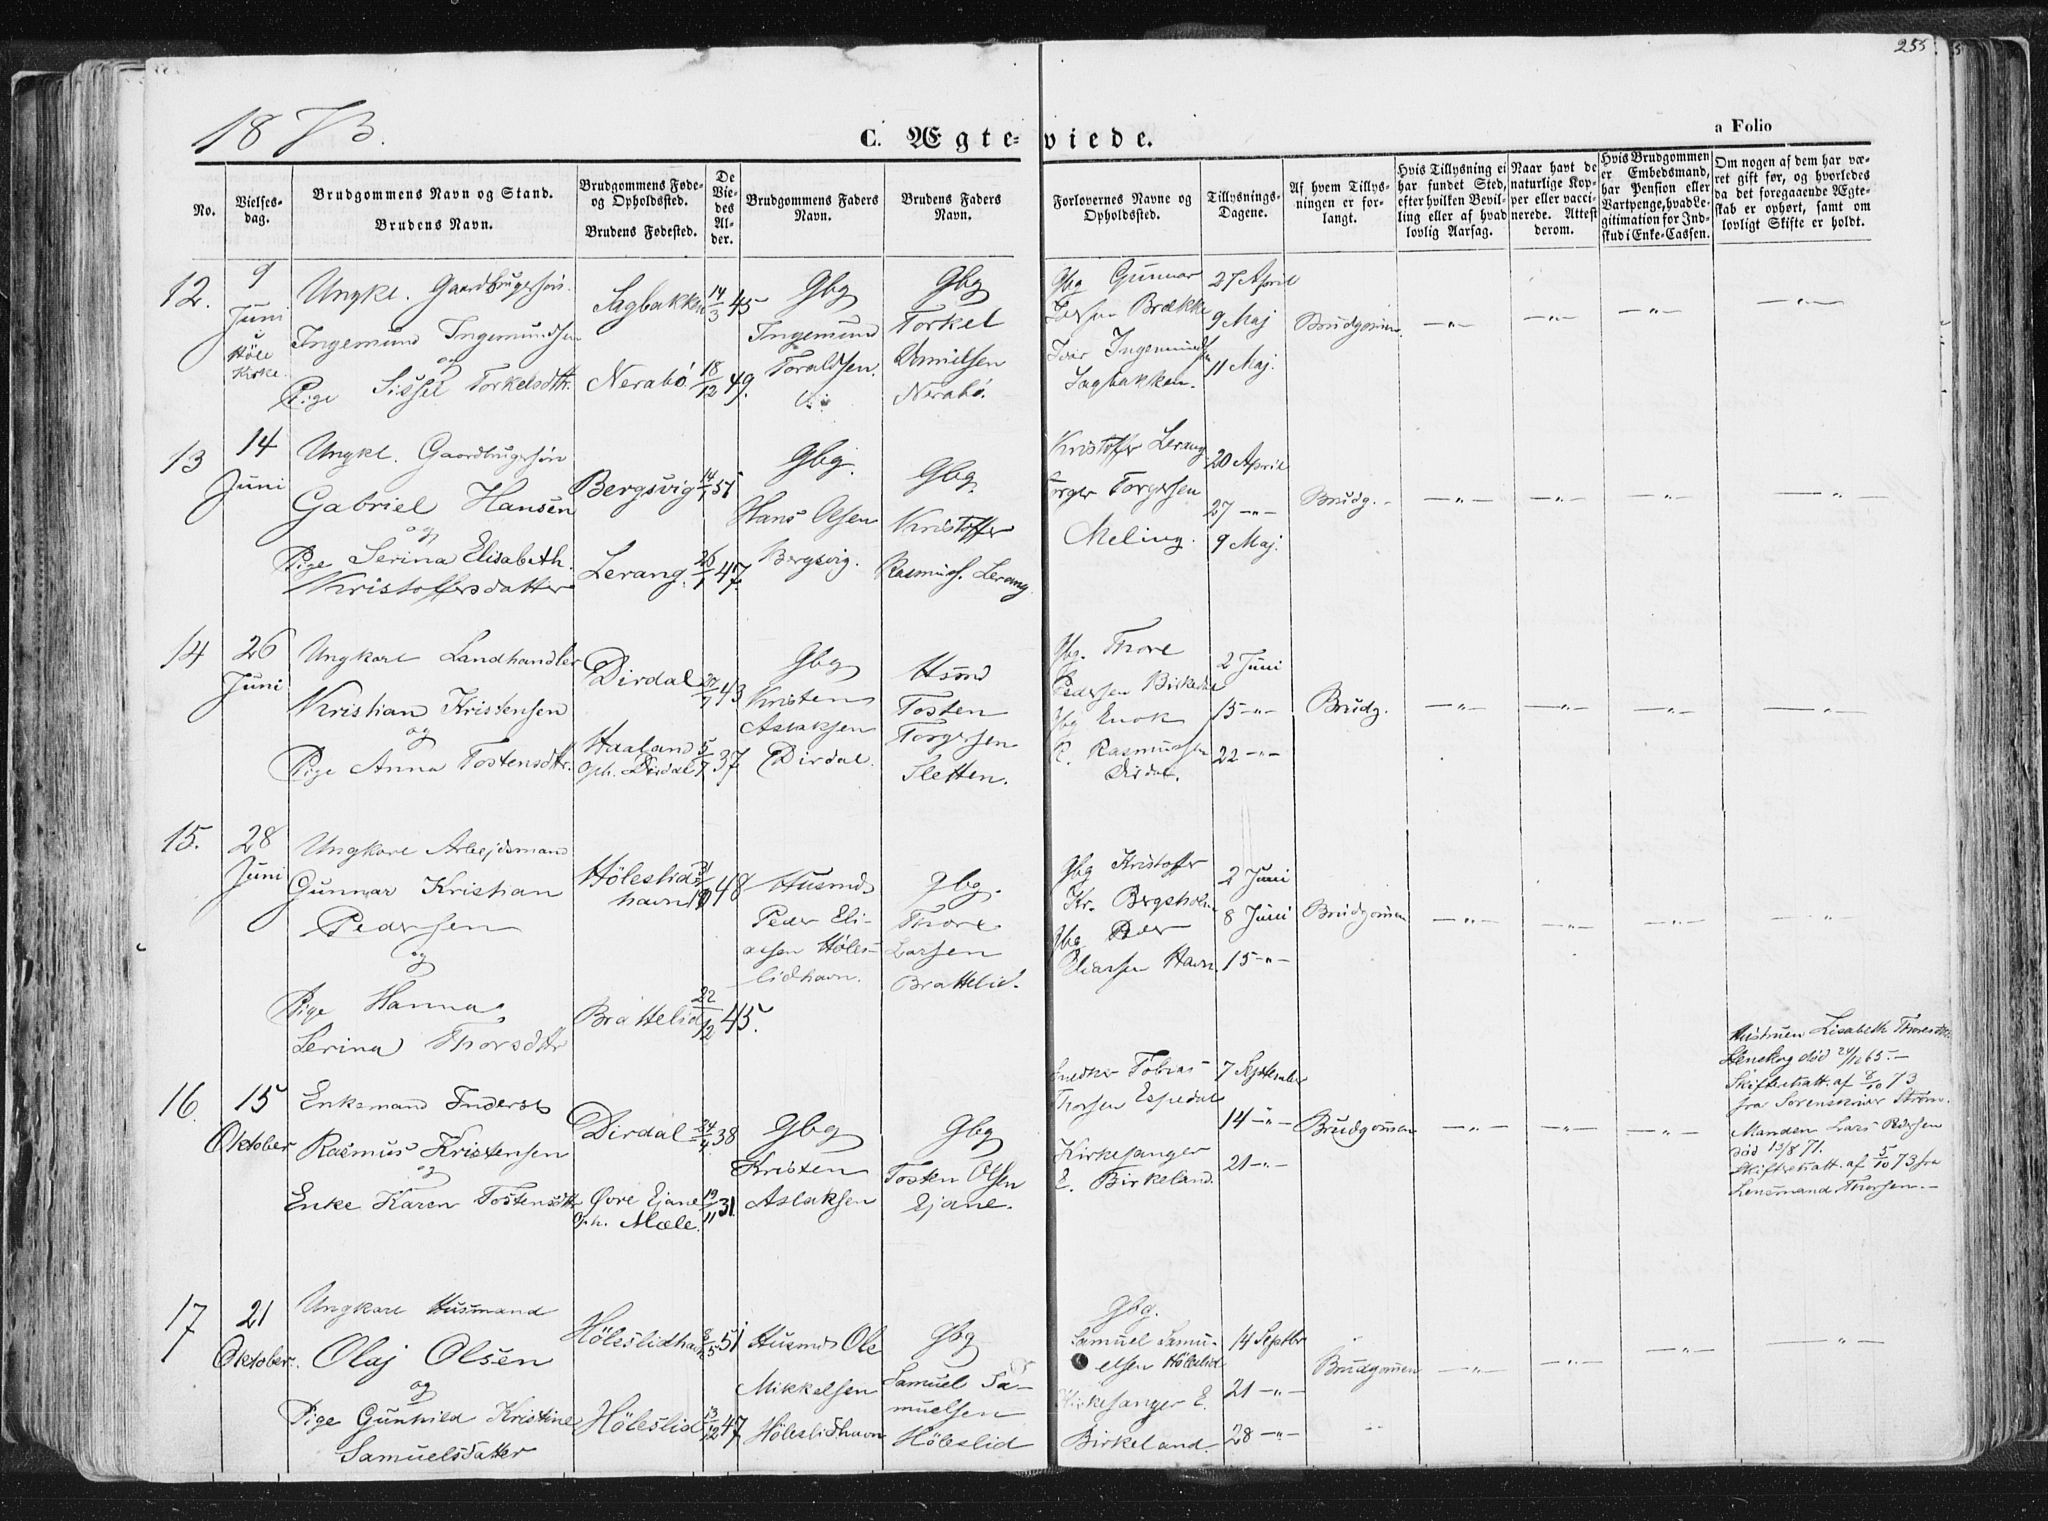 255
1873.
C. Ægteviede.
a Folio
No.
Vielsesdag.
Brudgommens Navn og Stand.
Brudens Navn.
Brudgommens Føde- og Opholdssted.
Brudens Fødested.
De Viedes Alder.
Brudgommens Faders Navn.
Brudens Faders Navn.
Forlovernes Navne og Opholdssted.
Tillysnings-Dagene.
Af hvem Tillysningen er forlangt.
Hvis Tillysning ei har fundet Sted, efter hvilken Bevilling eller af hvad lovlig Aarsag.
Naar havt de naturlige Kopper eller vaccinerede. Attest derom.
Hvis Brudgommen er Embedsmand, har Pension eller Vartpenge, hvad Legitimation for Indskud i Enke-Cassen.
Om nogen af dem har været gift før, og hvorledes da det foregaaende Ægteskab er ophørt, samt om lovligt Skifte er holdt.
12.
9
Juni
i Høle Kirke.
Ungkl. Gaardbrugersøn
Ingemund Ingemundsen
og
Pige Sissel Torkelsdtr.
Sagbakken
Nerabö
14/3 45
18/12 49.
Gbg
Ingemund
Toraldsen.
Gbg
Torkel
Danielsen
Nerabö.
Gbg Gunnar
Larsen Brække
Ivar Ingemundsen
Sagbakken.
27 April
9 Maj
11 Maj.
Brudgommen
—„—
—„—
—„—
—„—
13
14
Juni
Ungkl. Gaardbrugersøn
Gabriel Hansen
og
Pige Serina Elisabeth
Kristoffersdatter
Bergsvig
Lerang.
14/1 51
26/1 47.
Gbg.
Hans Olsen
Bergsvig.
Gbg.
Kristoffer
Rasmuss. Lerang
Kristoffer Lerang
Torger Torgersen
Meling.
20 April
27 —„—
9 Maj.
Brudg.
—„—
—„—
—„—
—„—
14
26
Juni
Ungkarl Landhandler
Kristian Kristensen
og
Pige Anna Tostensdtr.
Dirdal
Haaland
Oph. Dirdal
43
5/7 37
Gbg
Kristen
Aslaksen
Dirdal.
Hsmd
Tosten
Torgersen
Sletten.
Gbg. Thore
Pedersen Birkedal
Gbg Enok
R. Rasmussen
Dirdal.
2 Juni
15 —„—
22 —„—
Brudg.
—„—
—„—
—„—
—„—
15.
28
Juni
Ungkarl Arbejdsmand
Gunnar Kristian
Pedersen
og
Pige Hanna
Serina Thorsdtr
Höleslid
havn
Brattelid
48
22/12 45.
Husmd
Peder Eli-
asen Höles-
lidhavn.
Gbg.
Thore
Larsen
Brattelid.
Gbg Kristoffer
Kr. Bergsholm
Gbg Peder
Eliassen Havn.
2 Juni
8 Juni
15 —„—
Brudgommen
—„—
—„—
—„—
—„—
16.
15
Oktober
Enkemand Inderst
Rasmus Kristensen
og
Enke Karen Tostensdtr.
Dirdal
Øvre Ejane
Oph. Mæle.
24/4 38
19/11 31.
Gbg
Kristen
Aslaksen
Gbg
Tosten Olsen
Ejane.
Snedker Tobias
Thorsen Espedal
Kirkesanger
E. Birkeland.
7 September
14 —„—
21 —„—
Brudgommen
—„—
—„—
—„—
Hustruen Lisabeth Thoresdtr.
død 65.—
Skifteratt. af 8/10 73
fra Sorenskriver Strøm.
Manden Lars Pedersen
død 13/8 71.
Skifteratt. af 5/10 73 fra
Lensmand Thorsen.—
17
21
Oktober.
Ungkarl Husmand
Olaj Olsen
og
Pige Gunhild Kristine
Samuelsdatter
Höleslidhavn
Höleslid
8/5 51
13/12 47
Husmd Ole
Mikkelsen
Höleslidhavn
Gbg
Samuel Sa-
muelsen
Höleslid
Gbg.
Samuel Samu-
elsen Höleslid
Kirkesanger E.
Birkeland.
14 Septbr
21 —„—
28 —„—
Brudgommen
—„—
—„—
—„—
—„—